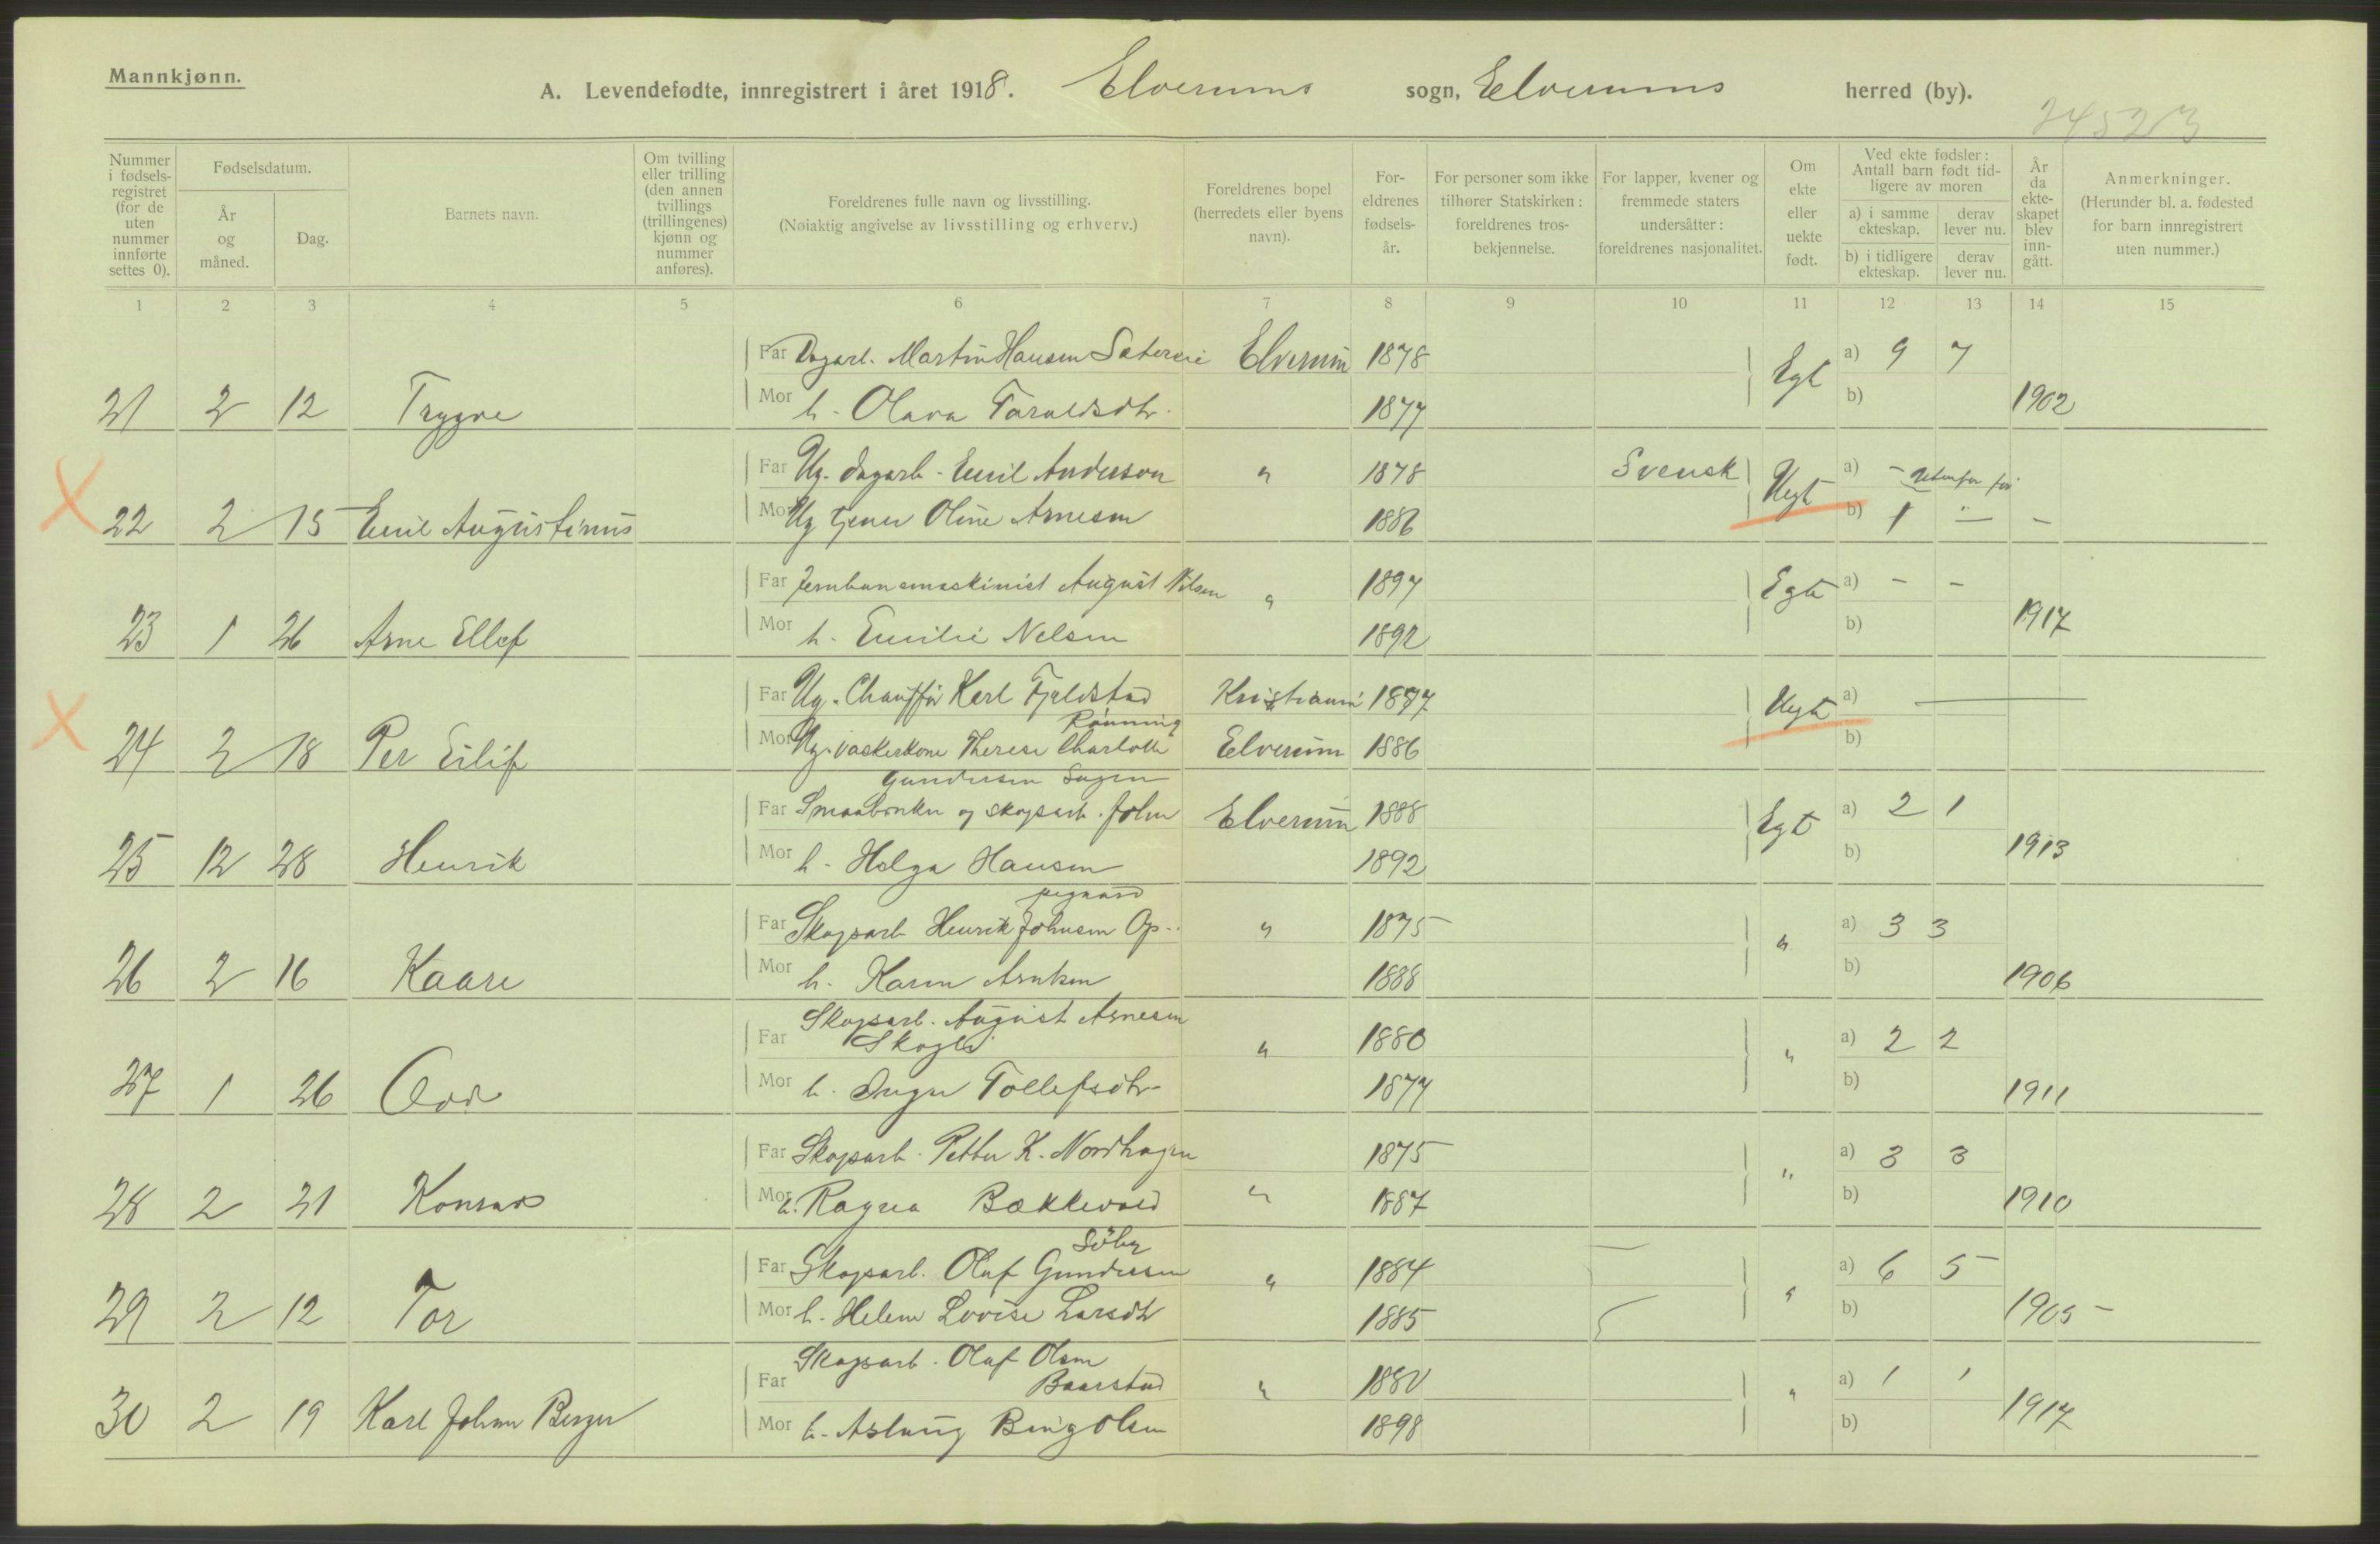 Mannkjønn.
A. Levendefødte, innregistrert i året 1918. Elverums sogn, Elverums herred (by).
24523
Nummer i fødsels-registret (for de uten nummer innførte settes 0).
Fødselsdatum.
År og måned.
Dag.
Barnets navn.
Om tvilling eller trilling (den annen tvillings (trillingenes) kjønn og nummer anføres).
Foreldrenes fulle navn og livsstilling.
(Nøiaktig angivelse av livsstilling og erhverv.)
Foreldrenes bopel (herredets eller byens navn).
For-eldrenes fødsels-år.
For personer som ikke tilhører Statskirken: foreldrenes tros-bekjennelse.
For lapper, kvener og fremmede staters undersåtter: foreldrenes nasjonalitet.
Om ekte eller uekte født.
Ved ekte fødsler: Antall barn født tid-ligere av moren
a) i samme ekteskap.
derav lever nu.
b) i tidligere ekteskap.
derav lever nu.
År da ekte-skapet blev inn-gått.
Anmerkninger.
(Herunder bl. a. fødested for barn innregistrert uten nummer.)
1 2 3 4 5 6 7 8 9 10 11 12 13 14 15
Far Dagarb. Martin Hansen Elverum 1878 Egt a) 9 7
21 2 12 Trygve Mor h. Olava Taraldsdtr. 1877 b) 1902
Far Ug. dagarb. Emil Anderson " 1878 Svensk Uegt a) – Utenfor
22 2 15 Emil Augustinus Mor Ug tjener Oline Arnesen 1886 b) 1 " –
Far Jernbanemaskinist August Nilsen " 1897 Egte a) – –
23 1 26 Arne Ellef Mor h. Emilie Nelsen 1892 b) 1917
Far Ug. Chauffør Karl Fjeldstad Kristiania 1887 Uegte a)
Rønning
24 2 18 Per Eilif Mor Ug. vaskerkone Therese Charlotte Elverum 1886 b)
Gundersen Sagen
Far Smaabruker og skogsarb. John Elverum 1888 Egte a) 2 1
25 12 28 Henrik Mor h. Helga Hansen 1892 b) 1913
pegaard
Far Skogsarb Henrik Johnsen Op- " 1875 " a) 3 3
26 2 16 Kaare Mor h. Karen Arntsen 1888 b) 1906
Skogsarb. August Arnesen
Far Skogli " 1880 " a) 2 2
27 1 26 Odd Mor h. Inga Tollefsdtr. 1877 b) 1911
Far Skogsarb. Petter K. Nordhagen 1875 " a) 3 3
28 2 21 Konrad Mor h. Ragna Bækkevold " 1887 b) 1910
Søby
Far Skogsarb. Olaf Gundersen " 1884 " a) 6 5
29 2 12 Tor Mor h. Helene Lovise Larsdtr 1885 b) 1905 –
Skogsarb. Olaf Olsen
Far Baarstad " 1880 " a) 1 1
30 2 19 Karl Johan Berger Mor h. Aslaug Berg Olsen 1898 b) 1917